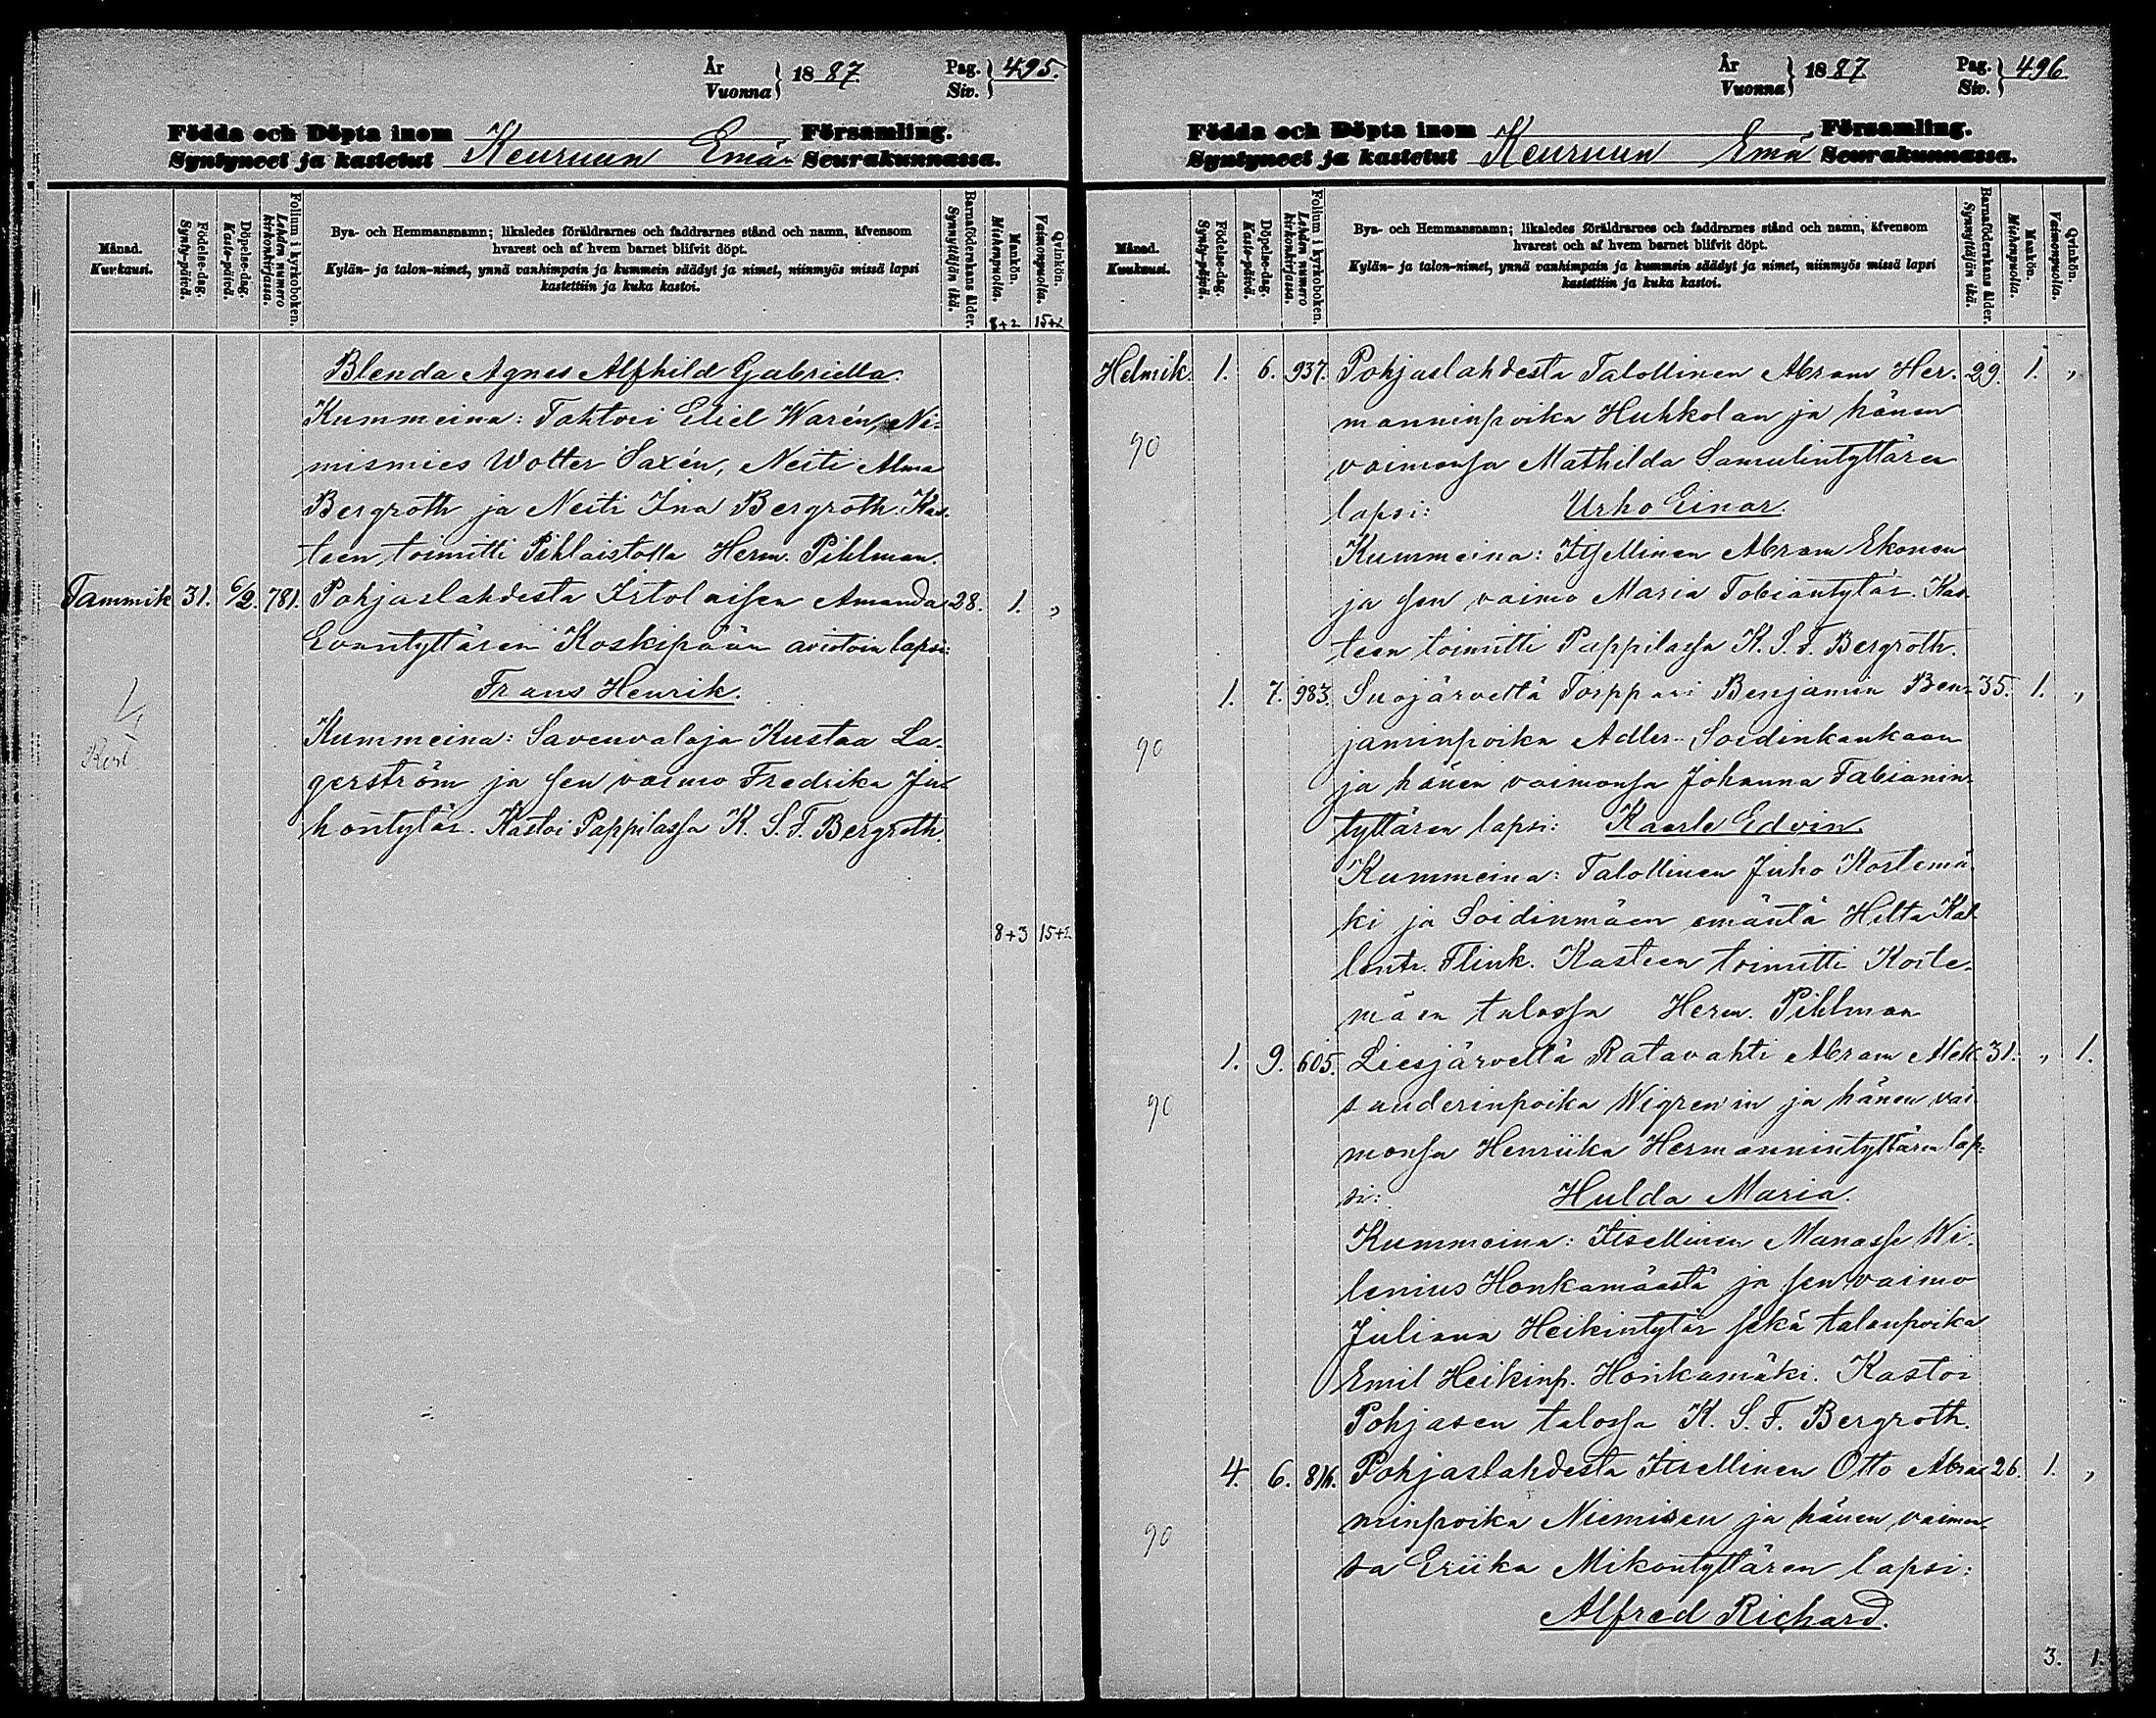 År
Vuonna } 1887.
Pag.
Siv. } 495.
Födda och Döpta inom
Syntyneet ja kastetut Keuruun Emä- Församling.
Seurakunnassa.
Månad.
Kuukausi.
Födelse-dag.
Synty-päivä.
Döpelse-dag.
Kaste-päivä.
Folium i kyrkoboken.
Lehden numero kirkonkirjassa.
Bya- och Hemmansnamn; likaledes föräldrarnes och faddrarnes stånd och namn, äfvensom
hvarest och af hvem barnet blifvit döpt.
Kylän- ja talon-nimet, ynnä vanhimpain ja kummein säädyt ja nimet, niinmyös missä lapsi
kastettiin ja kuka kastoi.
Barnaföderskans ålder.
Synnyttäjän ikä.
Mankön.
Miehenpuolta.
Qvinkön.
Vaimonpuolta.
8+2 15+2
Blenda Agnes Alfhild Gabriella.
Kummeina: Tohtori Eliel Warén, Ni-
mismies Wolter Saxén, Neiti Alma
Bergroth ja Neiti Ina Bergroth. Kas-
teen toimitti Pihlaistolla Herm. Pihlman.
Tammik 31. 6/2. 781. Pohjaslahdesta Irtolaisen Amanda 28. 1. „
Evantyttären Koskipään aviotoin lapsi:
Frans Henrik.
Kummeina: Savenvalaja Kustaa La-
gerström ja sen vaimo Fredrika Ju-
hontytär. Kastoi Pappilassa K. S. F. Bergroth.
8+3 15+2
År
Vuonna } 1887
Pag.
Siv. } 496
Födda och Döpta inom
Syntyneet ja kastetut Keuruun Emä Församling.
Seurakunnassa.
Månad.
Kuukausi.
Födelse-dag.
Synty-päivä.
Döpelse-dag.
Kaste-päivä.
Folium i kyrkoboken.
Lehden numero kirkonkirjassa.
Bya- och Hemmansnamn; likaledes föräldrarnes och faddrarnes stånd och namn, äfvensom
hvarest och af hvem barnet blifvit döpt.
Kylän- ja talon-nimet, ynnä vanhimpain ja kummein säädyt ja nimet, niinmyös missä lapsi
kastettiin ja kuka kastoi.
Barnaföderskans ålder.
Synnyttäjän ikä.
Mankön.
Miehenpuolta.
Qvinkön.
Vaimonpuolta.
Helmik. 1. 6. 937. Pohjaslahdesta Talollinen Abram Her- 29. 1. „
manninpoika Huhkolan ja hänen
90 vaimonsa Mathilda Samulintyttären
lapsi: Urho Einar.
Kummeina: Itsellinen Abram Ekonen
ja sen vaimo Maria Tobiantytär. Kas-
teen toimitti Pappilassa K. S. F. Bergroth.
1. 7. 983. Suojärveltä Torppari Benjamin Ben- 35. 1. „
90 jaminpoika Adler-Soidinkankaan
ja hänen vaimonsa Johanna Fabianin-
tyttären lapsi: Kaarle Edvin.
Kummeina: Talollinen Juho Kostemä-
ki ja Soidinmäen emäntä Hilta Kal-
lentr. Flink. Kasteen toimitti Koste-
mäen talossa Herm. Pihlman
1. 9. 605. Liesjärveltä Ratavahti Abram Alek- 31. „ 1.
90 sanderinpoika Wigren'in ja hänen vai-
monsa Henriika Hermannintyttären lap-
si: Hulda Maria.
Kummeina: Itsellinen Manasse Wi-
lenius Honkamäestä ja sen vaimo
Juliana Heikintytär sekä talonpoika
Emil Heikinp. Honkamäki. Kastoi
Pohjasen talossa K. S. F. Bergroth.
4. 6. 816. Pohjaslahdesta Itsellinen Otto Abra- 26. 1. „
90 minpoika Niemisen ja hänen vaimon-
sa Eriika Mikontyttären lapsi:
Alfred Richard.
3. 1.